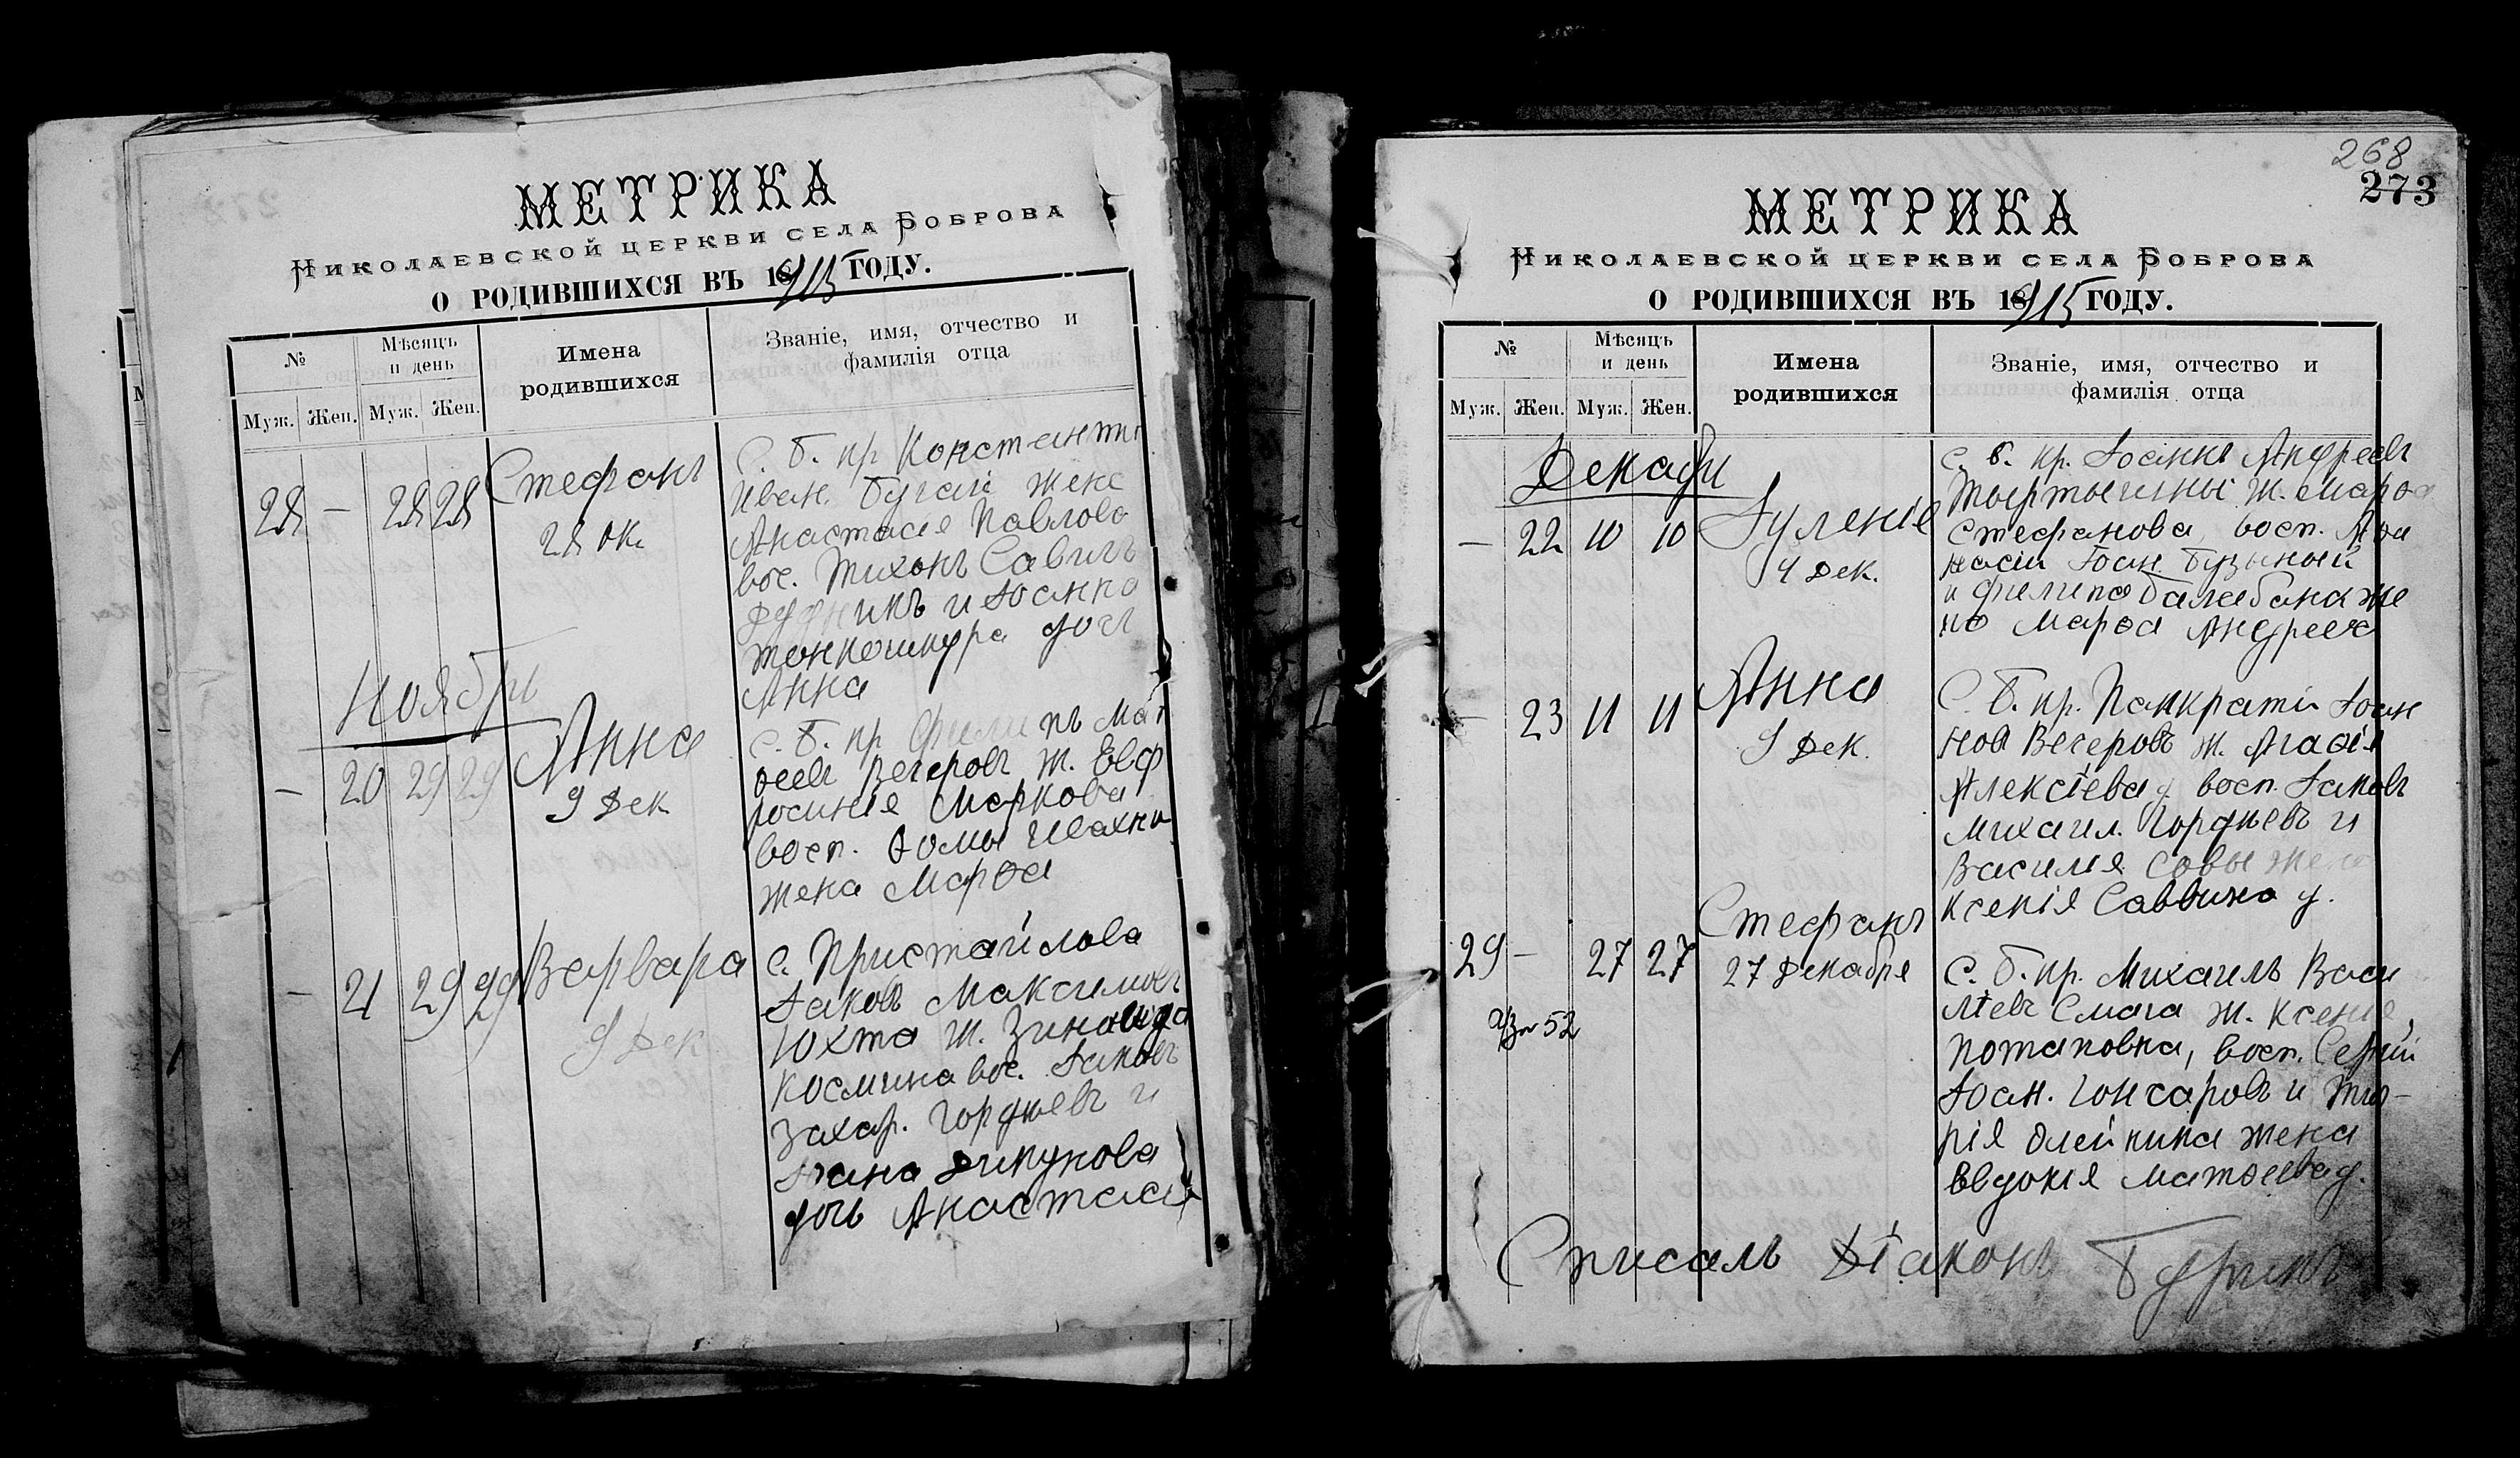 МЕТРИКА
Николаевской церкви села Боброва
о родившихся въ 1915 году.
№ Мѣсяцъ и день Имена родившихся Званіе, имя, отчество и фамилія отца
Муж. Жен. Муж. Жен.
28 — 28 28 Стефанъ
28 Ок.
С. б. пр Константи
Иван. Бугай жена
Анастасія Павлова
вос. Тихонъ Савичъ
и Іоанна
Тонкошкура дочь
Анна
Ноябрь
— 20 29 29 Анна
9 Дек
С. б. пр Филипъ Мат
ѳеевъ Вечеровъ ж. Евф
росинія Маркова
восп. Ѳомы Ивахно
жена Марѳа
— 21 29 29 Варвара
9 Дек
с. Пристайлова
Іаковъ Максимовъ
Юхта ж. Зинаида
Космина вос. Іаковъ
Захар. Гордѣевъ и
дочь Анастасія
268
273
МЕТРИКА
Николаевской церкви села Боброва
о родившихся въ 1915 году.
№ Мѣсяцъ и день Имена родившихся Званіе, имя, отчество и фамилія отца
Муж. Жен. Муж. Жен.
Декабрь
— 22 10 10 Іуленіе
4 Дек.
С. б. пр. Іоаннъ Андреевъ
ж. Марѳа
Стефанова, восп. Аѳа
насій Іоан. Бузыный
и Филипа Балабана же
на Марѳа Андреева
— 23 11 11 Анна
9 Дек.
С. б. пр. Панкратій Іоан
нов Вечеровъ ж. Агаѳія
Алексѣева, восп. Іаковъ
Михаил. Гордѣевъ и
Василія Совы жена
Ксенія Саввина у.
29 — 27 27 Стефанъ
27 Декабря
52
С. б. пр. Михаилъ Васи
лѣевъ Смага ж. Ксенія
Потаповна, восп. Сергій
Іоан. Гончаровъ и
рія Олейника жена
Евдокія Матѳеева у.
Списалъ Діаконъ